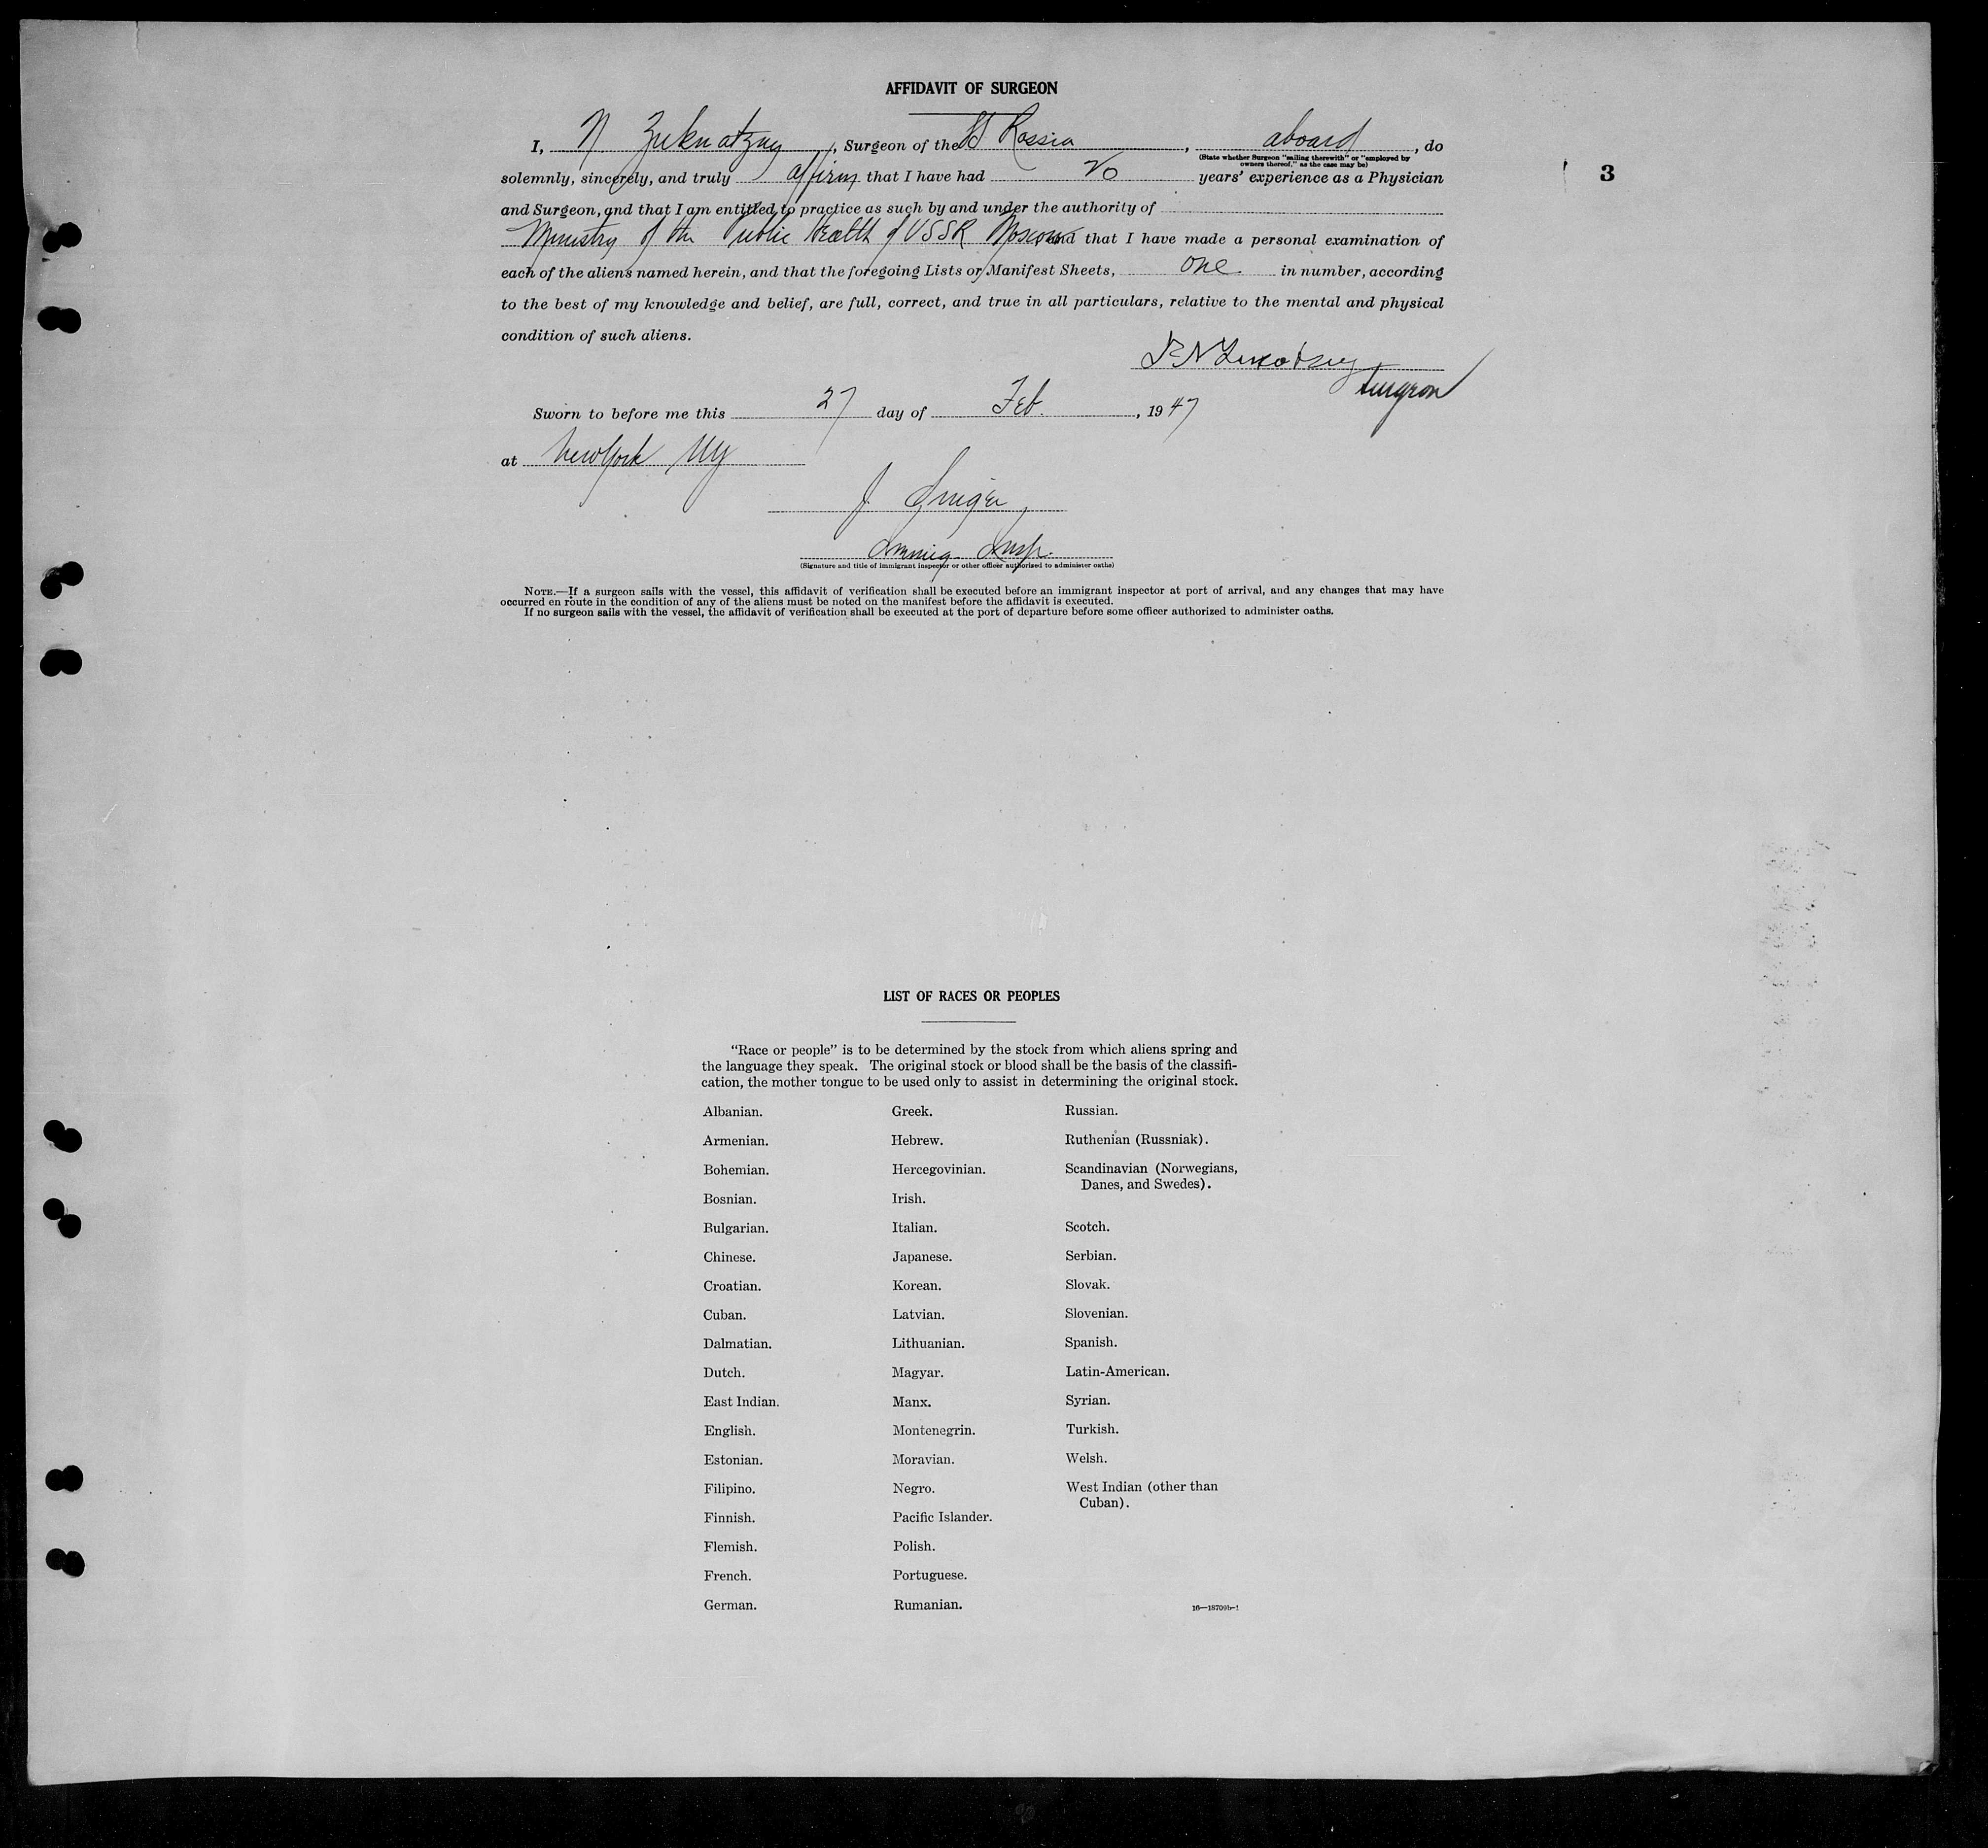 AFFIDAVIT OF SURGEON
I, N , Surgeon of the SS Rossia, aboard, do
(State whether Surgeon "sailing therewith" or "employed by
owners thereof," as the case may be)
3
solemnly, sincerely, and truly affirm that I have had years' experience as a Physician
and Surgeon, and that I am entitled to practice as such by and under the authority of
Ministry of the Public Health of USSR Moscow and that I have made a personal examination of
each of the aliens named herein, and that the foregoing Lists or Manifest Sheets, one in number, according
to the best of my knowledge and belief, are full, correct, and true in all particulars, relative to the mental and physical
condition of such aliens.
Surgeon
Sworn to before me this 27 day of Feb., 1947
at New York NY
J.
Immig. Insp.
(Signature and title of immigrant inspector or other officer authorized to administer oaths)
NOTE.—If a surgeon sails with the vessel, this affidavit of verification shall be executed before an immigrant inspector at port of arrival, and any changes that may have
occurred en route in the condition of any of the aliens must be noted on the manifest before the affidavit is executed.
If no surgeon sails with the vessel, the affidavit of verification shall be executed at the port of departure before some officer authorized to administer oaths.
LIST OF RACES OR PEOPLES
"Race or people" is to be determined by the stock from which aliens spring and
the language they speak. The original stock or blood shall be the basis of the classifi-
cation, the mother tongue to be used only to assist in determining the original stock.
Albanian.
Armenian.
Bohemian.
Bosnian.
Bulgarian.
Chinese.
Croatian.
Cuban.
Dalmatian.
Dutch.
East Indian.
English.
Estonian.
Filipino.
Finnish.
Flemish.
French.
German.
Greek.
Hebrew.
Hercegovinian.
Irish.
Italian.
Japanese.
Korean.
Latvian.
Lithuanian.
Magyar.
Manx.
Montenegrin.
Moravian.
Negro.
Pacific Islander.
Polish.
Portuguese.
Rumanian.
Russian.
Ruthenian (Russniak).
Scandinavian (Norwegians,
Danes, and Swedes).
Scotch.
Serbian.
Slovak.
Slovenian.
Spanish.
Latin-American.
Syrian.
Turkish.
Welsh.
West Indian (other than
Cuban).